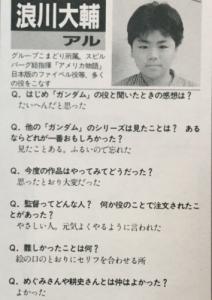 浪川大輔
アル
グループこまどり所属。スピル
バーグ総指揮「アメリカ物語」
日本版のファイベル役等、多く
の役をこなす
Q. はじめ「ガンダム」の役と聞いたときの感想は?
たいへんだと思った
Q. 他の「ガンダム」のシリーズは見たことは? あ
るならどれが一番おもしろかった?
見たことある。ふるいので忘れた
Q. 今度の作品はやってみてどうだった?
思ったとおり大変だった
Q. 監督ってどんな人? 何か役のことで注文されたこ
とがあった?
やさしい人。元気よくやるように言われた
Q. 難しかったことは何?
絵の口のとおりにセリフを合わせる所
Q. めぐみさんや耕史さんとは仲はよかった?
よかった